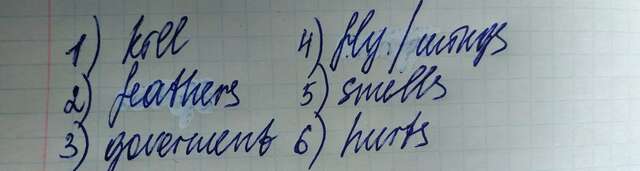 1) kill
2) feathers
3) goverment
4) fly / wings
5) smells
6) hurts